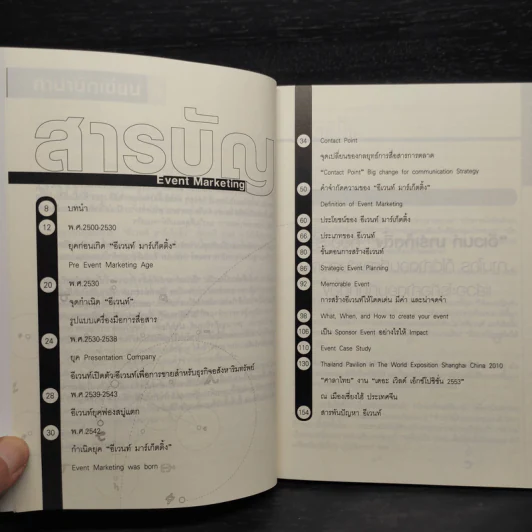 สารบัญ
Event Marketing
8 บทนำ
12 พ.ศ.2500-2530
ยุคก่อนเกิด "อีเวนท์ มาร์เก็ตติ้ง"
Pre Event Marketing Age
20 พ.ศ.2530
จุดกำเนิด "อีเวนท์"
รูปแบบเครื่องมือการสื่อสาร
24 พ.ศ.2530-2538
ยุค Presentation Company
อีเวนท์เปิดตัว-อีเวนท์เพื่อการขายสำหรับธุรกิจอสังหาริมทรัพย์
28 พ.ศ.2539-2543
อีเวนท์ยุคฟองสบู่แตก
30 พ.ศ.2542
กำเนิดยุค "อีเวนท์ มาร์เก็ตติ้ง"
Event Marketing was born
34 Contact Point
จุดเปลี่ยนของกลยุทธ์การสื่อสารการตลาด
"Contact Point" Big change for communication Strategy
50 คำจำกัดความของ "อีเวนท์ มาร์เก็ตติ้ง"
Definition of Event Marketing
60 ประโยชน์ของ อีเวนท์ มาร์เก็ตติ้ง
66 ประเภทของ อีเวนท์
80 ขั้นตอนการสร้างอีเวนท์
86 Strategic Event Planning
92 Memorable Event
การสร้างอีเวนท์ให้โดดเด่น มีค่า และน่าจดจำ
98 What, When, and How to create your event
106 เป็น Sponsor Event อย่างไรให้ Impact
110 Event Case Study
130 Thailand Pavilion in The World Exposition Shanghai China 2010
"ศาลาไทย" งาน "เดอะ เวิลด์ เอ็กซ์โปซิชัน 2553"
ณ เมืองเซี่ยงไฮ้ ประเทศจีน
154 สารพันปัญหา อีเวนท์